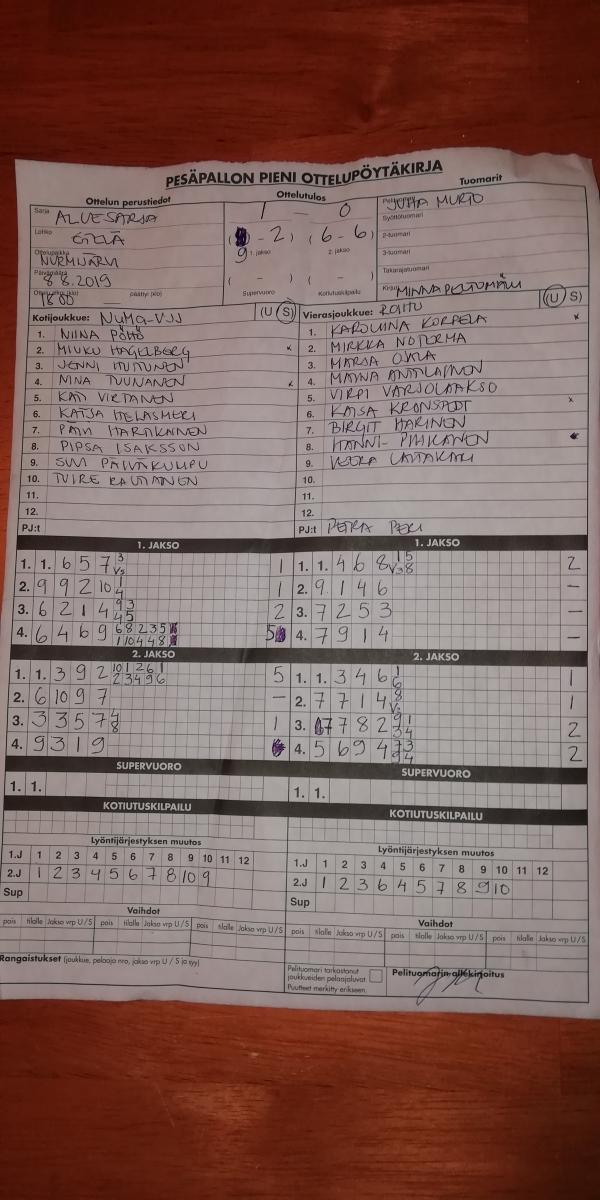 PESÄPALLON PIENI OTTELUPÖYTÄKIRJA
Ottelun perustiedot Ottelutulos Tuomarit
Sarja ALUESARJA 1 — 0 JUHA MURTO
Lohko ETELÄ Syöttötuomari
Ottelupaikka NURMIJÄRVI 9 - 2 ( 6 - 6 ) 2-tuomari
1. jakso 2. jakso 3-tuomari
Päivämäärä 8 8.2019 ( - ) ( - ) Takarajatuomari
18 00 päättyi (klo) Supervuoro Kotiutuskilpailu Kirjuri MINNA PELTOMÄKI
Kotijoukkue: NUMA-VJS (U S) Vierasjoukkue: ROIHU (U S)
1. NIINA PÖHÖ 1. KAROLIINA KORPELA x
2. MIUKU HAGELBERG x 2. MIRKKA NOTORMA
3. JENNI HUTUNEN 3. MARSA
4. NINA TUUNANEN x 4.
5. KATI VIRTANEN 5. VIRPI VARJOLAAKSO
6. KATJA HELASMERI 6. KAISA KRONSTEDT x
7. PÄIVI HARTIKAINEN 7. BIRGIT HARINEN
8. PIPSA ISAKSSON 8. HANNI PIHKANEN
9. SUVI PÄIVÄKUMPU 9. VEERA
10. TUIRE RAUTIAINEN 10.
11. 11.
12. 12.
PJ:t PJ:t PETRA
1. JAKSO 1. JAKSO
1. 1. 6 5 7 3 Vs 1 1. 1. 4 6 8 15 V38 2
2. 9 9 2 10 1 4 1 2. 9 1 4 6 —
3. 6 2 1 4 93 45 2 3. 7 2 5 3 —
4. 6 4 6 9 68235 110448 5 4. 7 9 1 4 —
2. JAKSO 2. JAKSO
1. 1. 3 9 2 101261 23496 5 1. 1. 3 4 6 1 6 1
2. 6 10 9 7 — 2. 7 7 1 4 8 Vs 1
3. 3 3 5 7 4 8 1 3. 7 7 8 2 91 34 2
4. 9 3 1 9 4. 5 6 9 4 73 94 2
SUPERVUORO SUPERVUORO
1. 1. 1. 1.
KOTIUTUSKILPAILU KOTIUTUSKILPAILU
Lyöntijärjestyksen muutos Lyöntijärjestyksen muutos
1.J 1 2 3 4 5 6 7 8 9 10 11 12 1.J 1 2 3 4 5 6 7 8 9 10 11 12
2.J 1 2 3 4 5 6 7 8 10 9 2.J 1 2 3 6 4 5 7 8 9 10
Sup Sup
Vaihdot Vaihdot
pois tilalle Jakso vrp U / S pois tilalle Jakso vrp U / S pois tilalle Jakso vrp U / S pois tilalle Jakso vrp U / S pois tilalle Jakso vrp U / S pois tilalle Jakso vrp U / S
Rangaistukset (joukkue, pelaaja nro, jakso vrp U / S ja syy) Pelituomari tarkastanut Pelituomarin allekirjoitus
joukkueiden pelaajaluvat.
Puutteet merkitty erikseen.